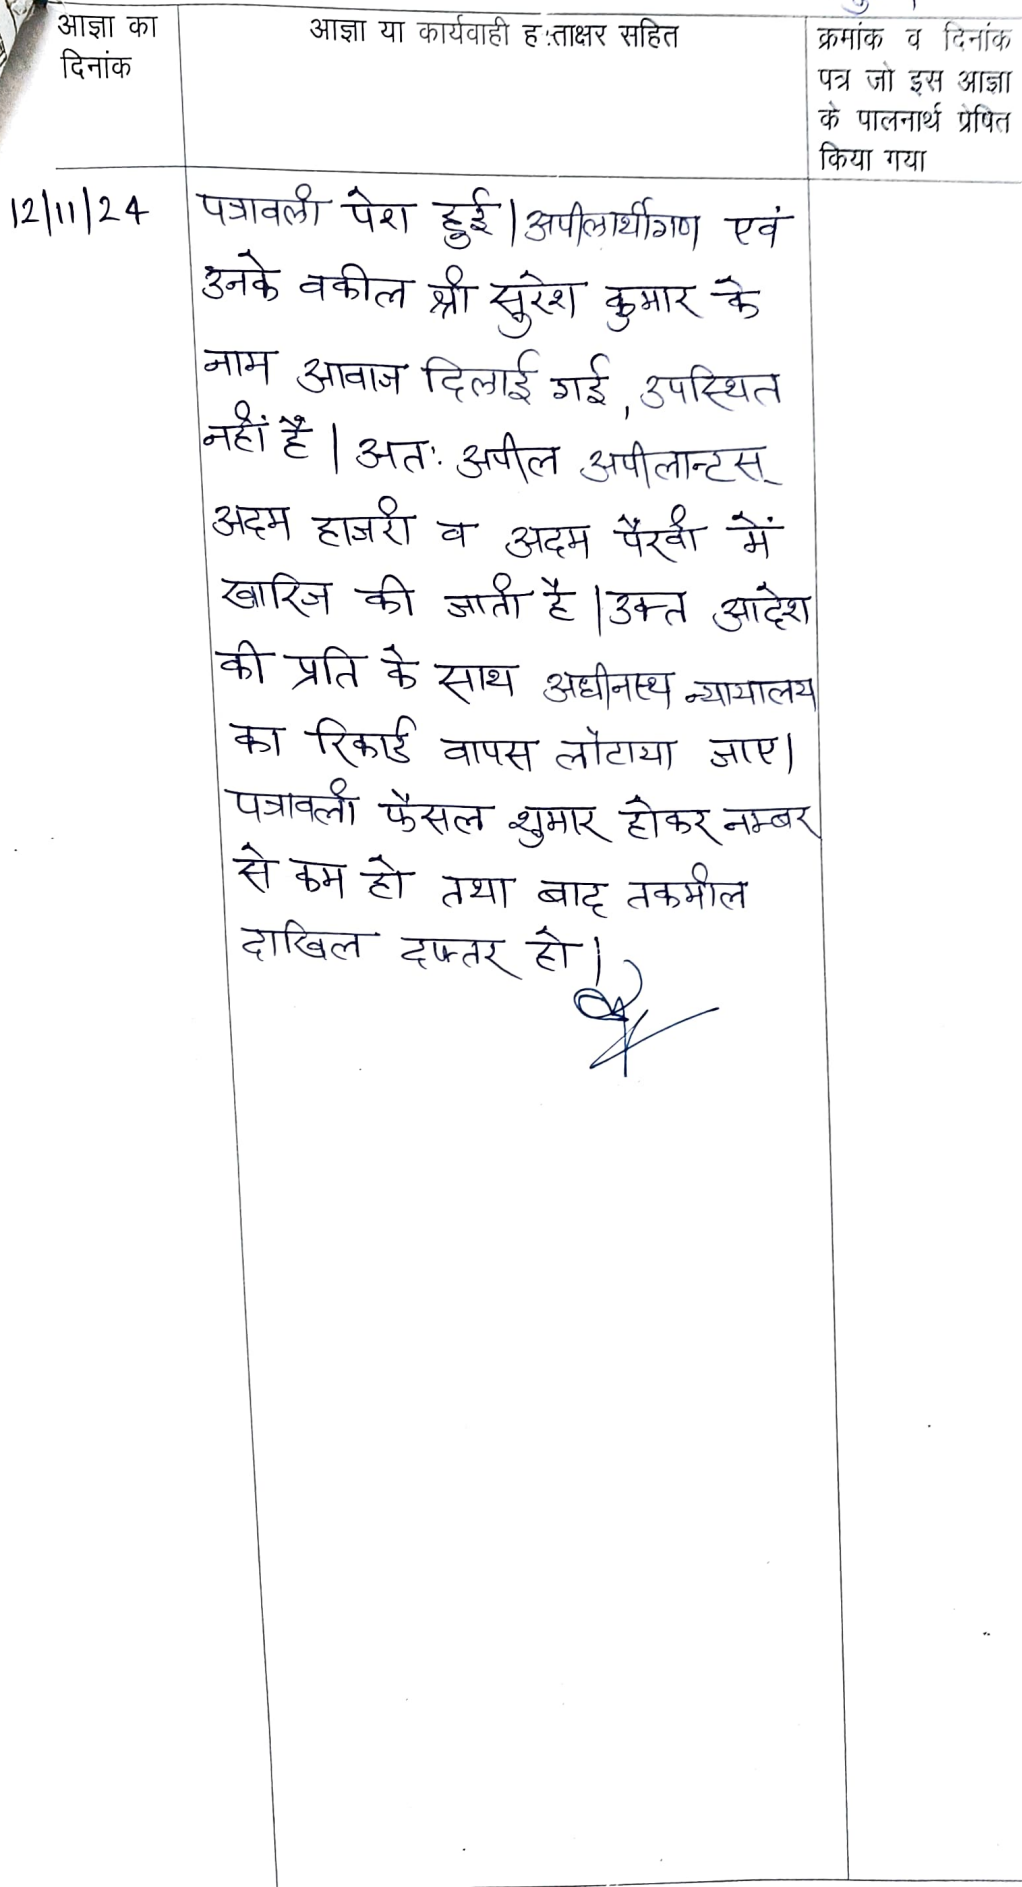 आज्ञा का
दिनांक
आज्ञा या कार्यवाही ह:ताक्षर सहित
क्रमांक व दिनांक
पत्र जो इस आज्ञा
के पालनार्थ प्रेषित
किया गया
12/11/24
पत्रावली पेश हुई। अपीलार्थीगण एवं
उनके वकील श्री सुरेश कुमार के
नाम आवाज दिलाई गई, उपस्थित
नहीं है। अत: अपील अपीलान्टस्
अदम हाजरी व अदम पैरवी में
खारिज की जाती है। उक्त आदेश
की प्रति के साथ अधीनस्थ न्यायालय
का रिकार्ड वापस लौटाया जाए।
पत्रावली फैसल शुमार होकर नम्बर
से कम हो तथा बाद तकमील
दाखिल दफ्तर हो।